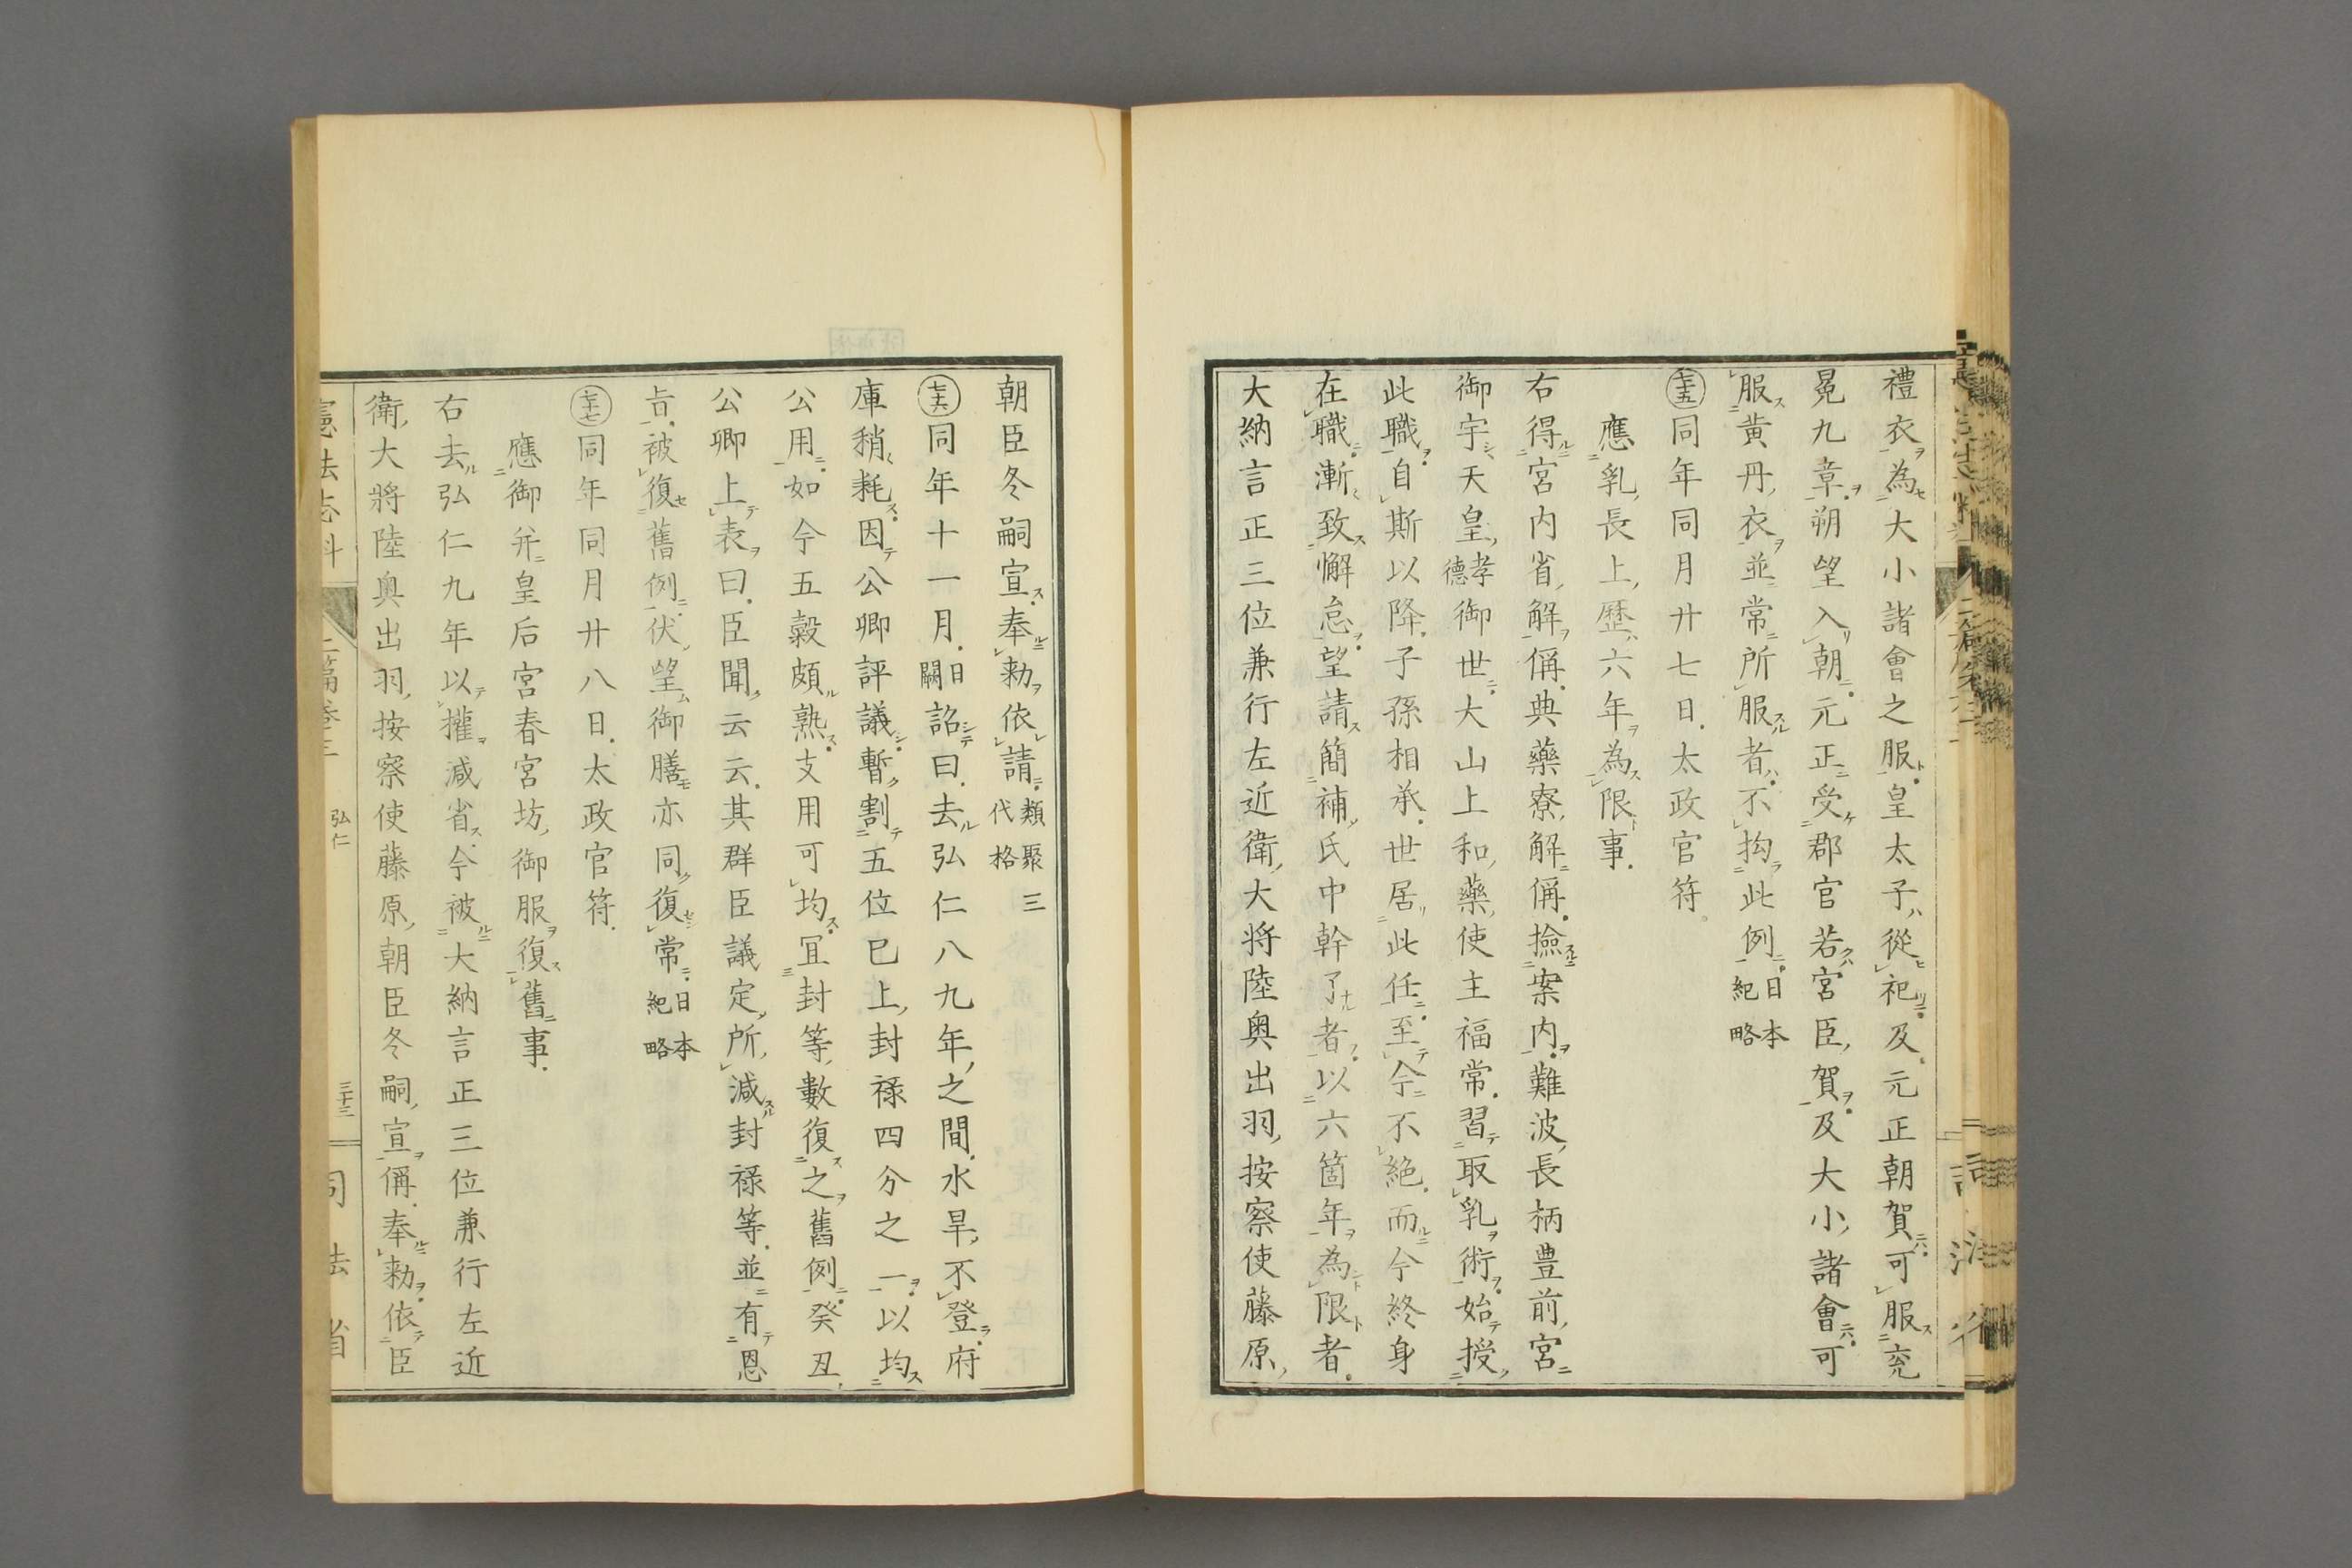 禮衣為大小諸會之服皇太子從祀及元正朝賀可服衮
冕九章朔望入朝元正受郡官若宮臣賀及大小諸會可
服黄丹衣並常所服者不拘此例日本紀略
㊆五同年同月廿七日太政官符
應乳長上歴六年為限事
右得宮内省解偁典藥寮解偁撿案内難波長柄豊前宮
御宇天皇孝德御世大山上和藥使主福常習取乳術始授
此職自斯以降子孫相承世居此任至今不絶而今終身
在職漸致懈怠望請簡補氏中幹了者以六箇年為限者
大納言正三位兼行左近衛大将陸奥出羽按察使藤原
朝臣冬嗣宣奉勅依請類聚三代格
同年十一月日闕詔曰去弘仁八九年之間水旱不登府
庫稍耗因公卿評議暫割五位已上封禄四分之一以均
公用如今五穀頗熟支用可均冝封等數復之舊例癸丑
公卿上表曰臣聞云云其群臣議定所減封禄等並有恩
旨被復舊例伏望御膳亦同復常日本紀略
同年同月廿八日太政官符
應御并皇后宮春宮坊御服復舊事
右去弘仁九年以權減省今被大納言正三位兼行左近
衛大將陸奥出羽按察使藤原朝臣冬嗣宣偁奉勅依臣
憲法志料 二篇卷三 弘仁 三十三 司法省